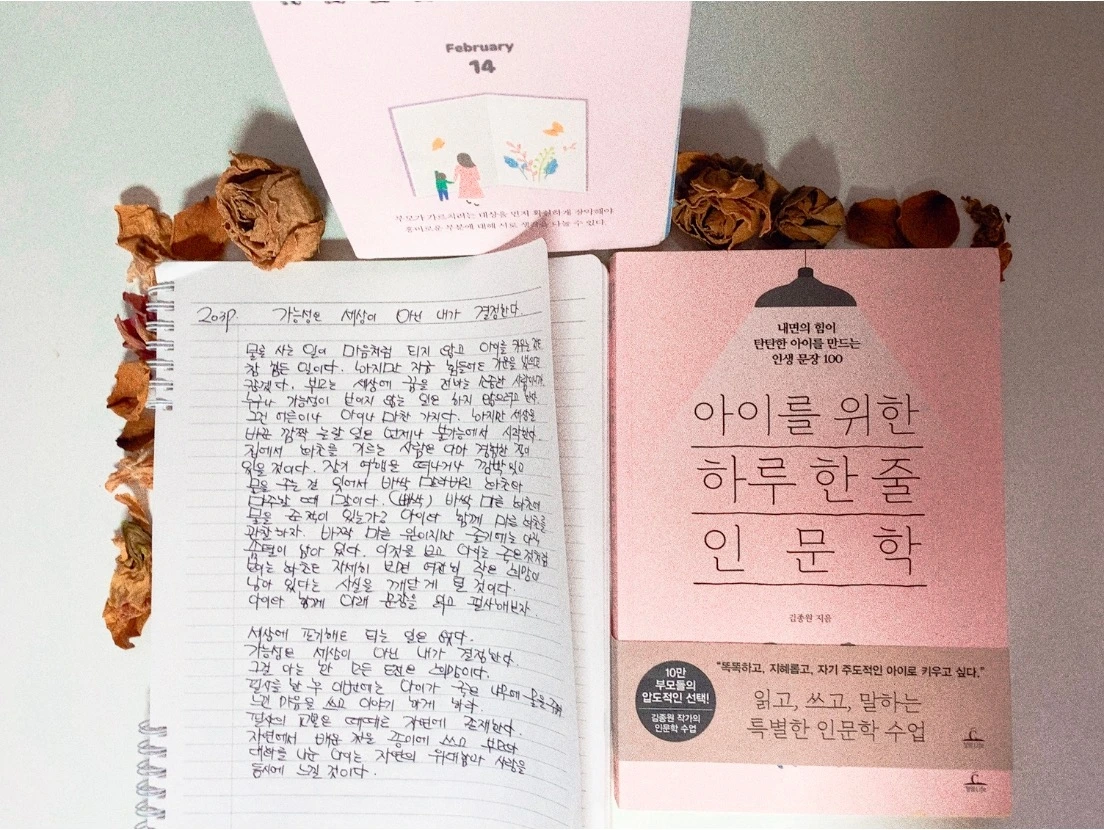 February
14
부모가 가르치려는 대상을 먼저 확실하게 장악해야
흥미로운 부분에 대해 서로 생각을 나눌 수 있다.
203P. 가능성은 세상이 아닌 내가 결정한다.
물을 사는 일이 마음처럼 되지 않고 아이를 키우는
참 힘든 일이다. 하지만 자주 힘들어도 기운을
부모는 세상에 꿈을 전하는 소중한
누구나 가능성이 보이지 않는 일은 하지 않으려고 한다.
그건 어른이나 아이나 마찬 가지다. 하지만 세상을
바꾼 깜짝 놀랄 일은 언제나 불가능에서 시작한다.
집에서 화초를 기르는 사람은 아마 경험한 적이
있을 것이다. 장기 여행을 떠나거나 깜박 잊고
물을 주는 걸 잊어서 바싹 말라버린 화초와
마주할 때 말이다. 바싹 마른 화초에
물을 준 적이 있는가? 아이와 함께 마른 화초를
관찰하자. 바짝 마른 잎이지만 줄기에는 아직
남아 있다. 이것을 보고 아이는 죽은 것처럼
보이는 화초도 자세히 보면 여전히 작은 희망이
남아 있다는 사실을 깨닫게 될 것이다.
아이와 함께 아래 문장을 읽고 필사해보자.
세상에 포기해도 되는 일은 없다.
가능성은 세상이 아닌 내가 결정한다.
그걸 아는 한 모든 도전은 희망이다.
필사를 한 후 이번에는 아이가 죽은 나무에 물을 주며
느낀 마음을 쓰고 이야기 하게 하라.
필사의 교본은 때때로 자연에 존재한다.
자연에서 배운 것을 종이에 쓰고 부모와
대화를 나눈 아이는 자연의 위대함과 사랑을
동시에 느낄 것이다.
내면의 힘이
탄탄한 아이를 만드는
인생 문장 100
아이를 위한
하루 한 줄
인문학
김종원 지음
10만
부모들의
압도적인 선택!
김종원 작가의
인문학 수업
"똑똑하고, 지혜롭고, 자기 주도적인 아이로 키우고 싶다."
읽고, 쓰고, 말하는
특별한 인문학 수업